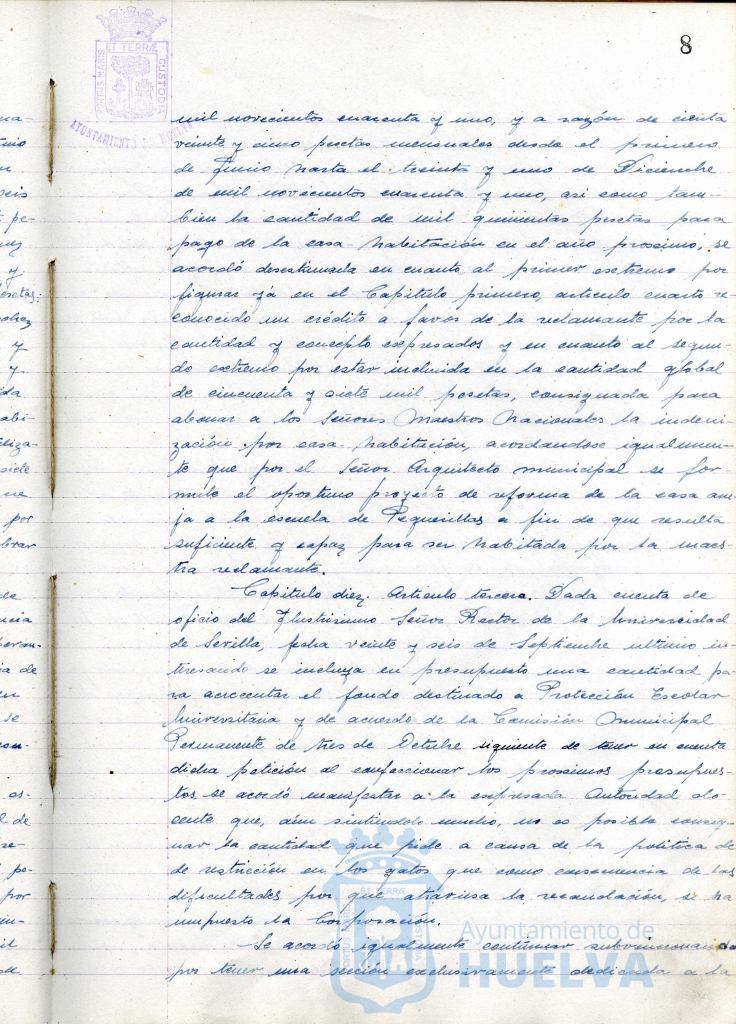 8
PORTUS MARIS ET TERRÆ CUSTODIA
AYUNTAMIENTO DE HUELVA
mil novecientos cuarenta y uno, y a razón de cienta
veinte y cinco pesetas mensuales desde el primero
de Junio hasta el treinta y uno de Diciembre
de mil novecientos cuarenta y uno, asi como tam-
bien la cantidad de mil quinientas pesetas para
pago de la casa-habitación en el año proximo, se
acordó desestimarla en cuanto al primer extremo por
figurar ya en el Capitulo primero, articulo cuarto re-
conocido un crédito a favor de la reclamante por la
cantidad y concepto expresados y en cuanto al segun-
do extremo por estar incluida en la cantidad global
de cincuenta y siete mil pesetas, consignada para
abonar a los Señores Maestros Nacionales la indemni-
zación por casa-habitación, acordandose igualmen-
te que por el Señor Arquitecto municipal se for-
mule el oportuno proyecto de reforma de la casa ane-
ja a la escuela de Pequerillas a fin de que resulta
suficiente y capaz para ser habitada por la maes-
tra reclamante.
Capitulo diez. Articulo tercero. Dada cuenta de
oficio del Ilustrisimo Señor Rector de la Universidad
de Sevilla, fecha veinte y seis de Septiembre ultimo in-
teresando se incluya en presupuesto una cantidad pa-
ra acrecentar el fondo destinado a Protección Escolar
Universitaria y de acuerdo de la Comisión Municipal
Permanente de tres de Octubre siguiente de tener en cuenta
dicha petición al confeccionar los proximos presupues-
tos se acordó manifestar a la expresada Autoridad do-
cente que, aún sintiendolo mucho, no es posible consig-
nar la cantidad que pide a causa de la politica de
de restricción en los gatos que como consecuencia de las
dificultades por que atraviesa la recaudación, se ha
impuesto la Corporación.
Se acordó igualmente continuar subvencionando
por tener una sección exclusivamente dedicada a la
ET TERRÆ
Ayuntamiento de
HUELVA